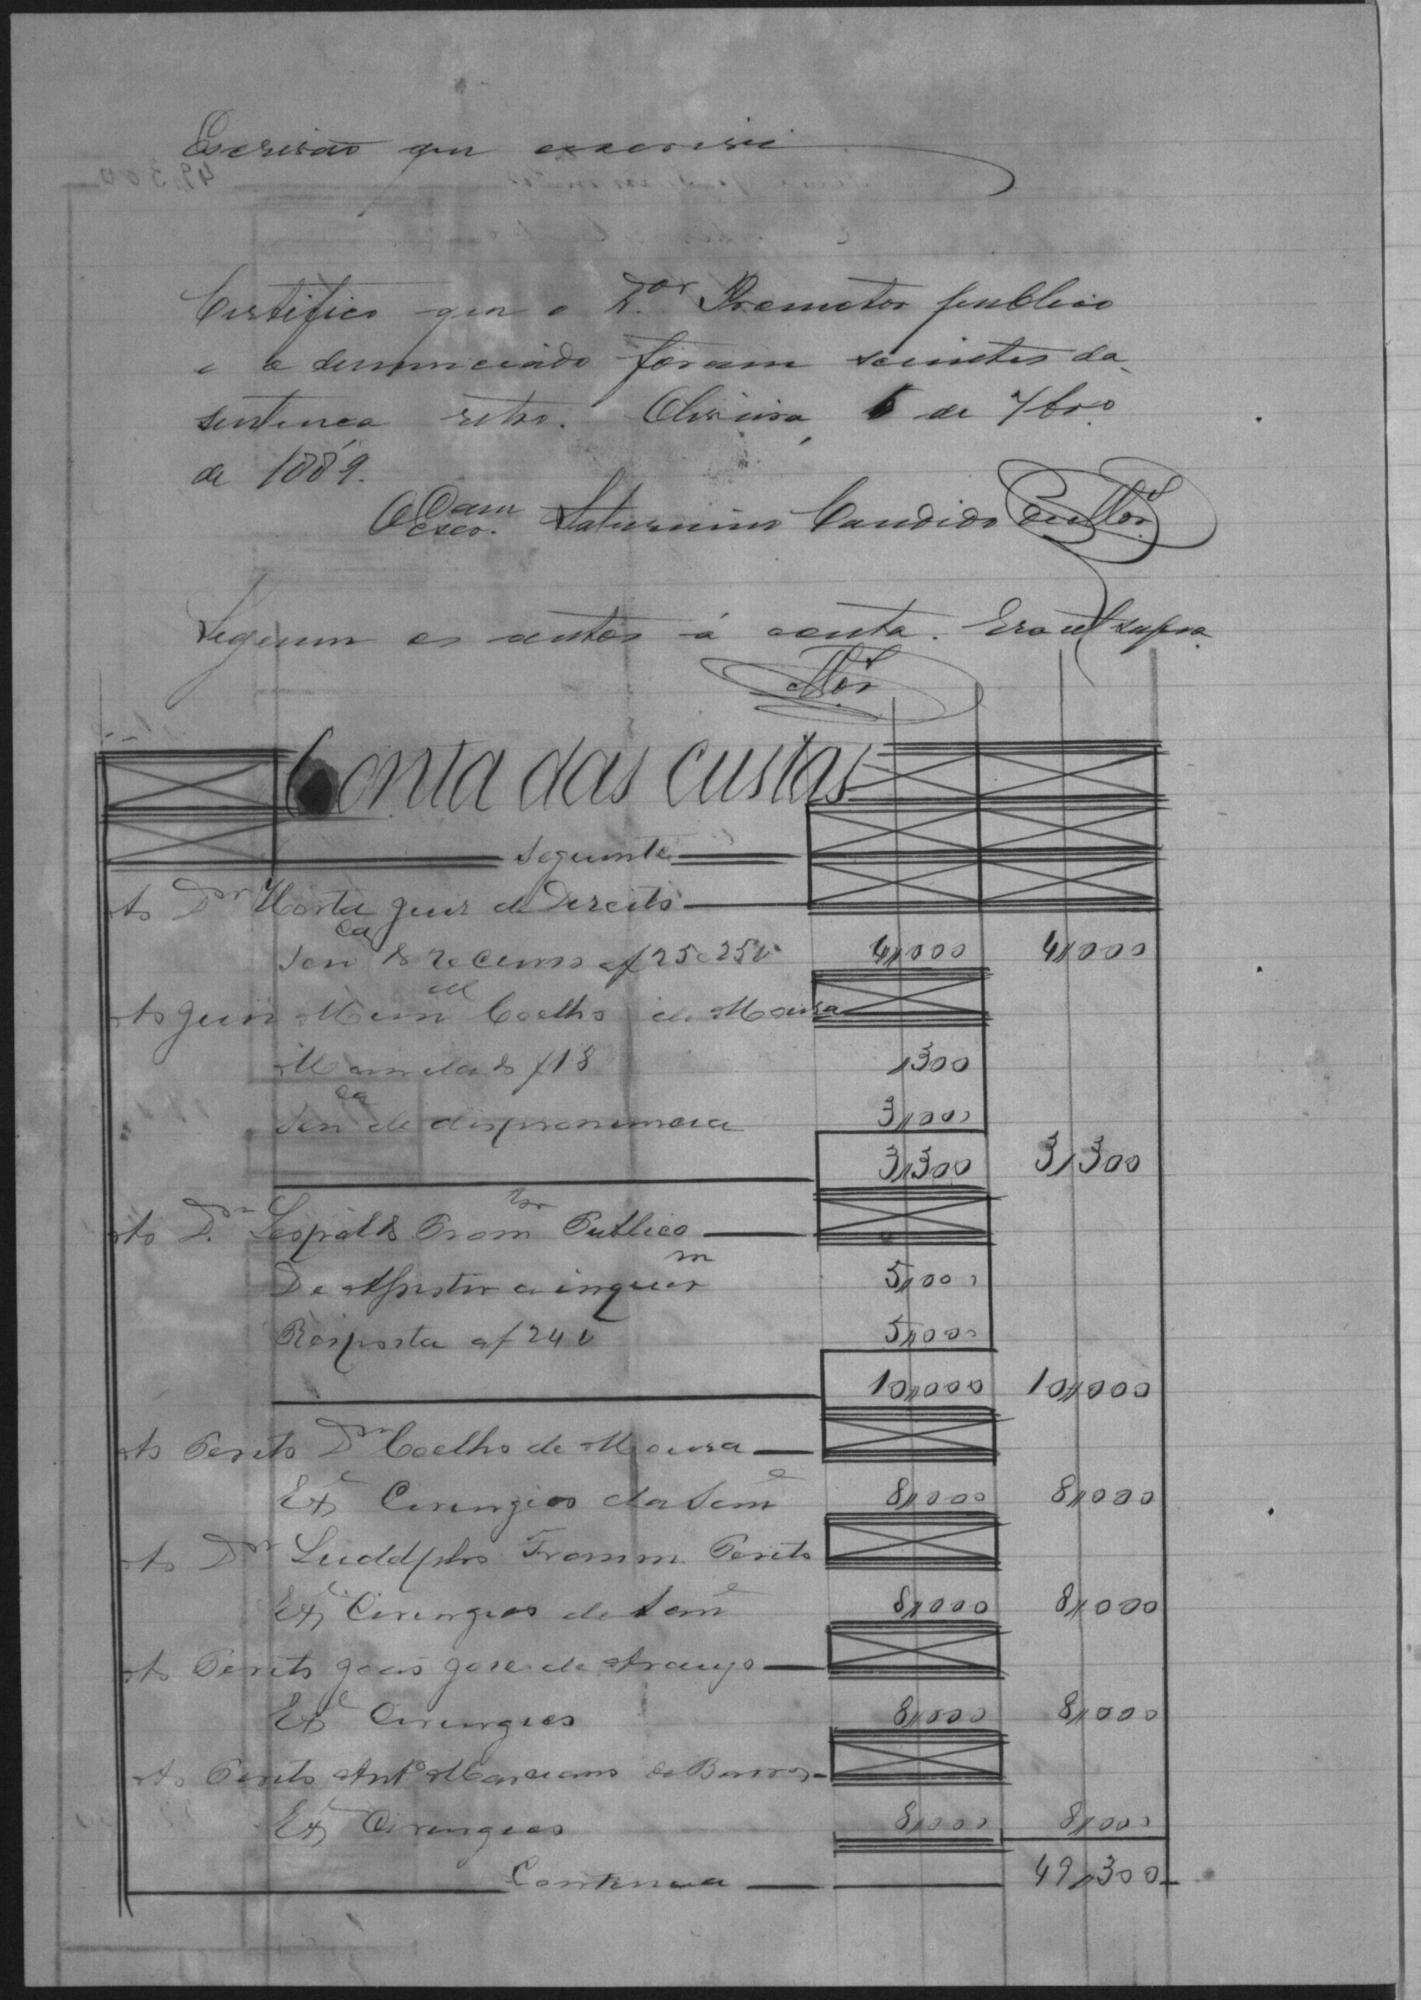 Escrivão que escrevi
Certifico que o D.or Promotor publico
e o denunciado foram scientes da
sentença retro. Oliveira, 6 de 7bro
de 1889.
O esco. Saturnino Candido
Segeum os autos á conta. Era ut supra
Conta das custas
Seguinte
Ao Dor Horta juis de Dereito
Sença do recurso af 25 e 25v 4,,000 4,,000
Ao juis Mel Coelho de Moura
Mandado f 18 ,,300
Sença de despronuncia 3,,000
3,,300 3,,300
Ao Dr. Leopoldo Promtor Publico
De assistir a inquerm 5,,000
Resposta af 24 v 5,,000
10,,000 10,,000
Ao Perito Dr Coelho de Moura
Exe Cirurgico da 8,,000 8,,000
Ao Dr Luddolpho Perito
Exe Cirurgico de 8,,000 8,,000
Ao Perito João José de Araujo
Exe Cirurgico 8,,000 8,,000
Ao Perito Anto Marciano de Barros
Exe Cirurgico 8,,000 8,,000
Continua 49,,300